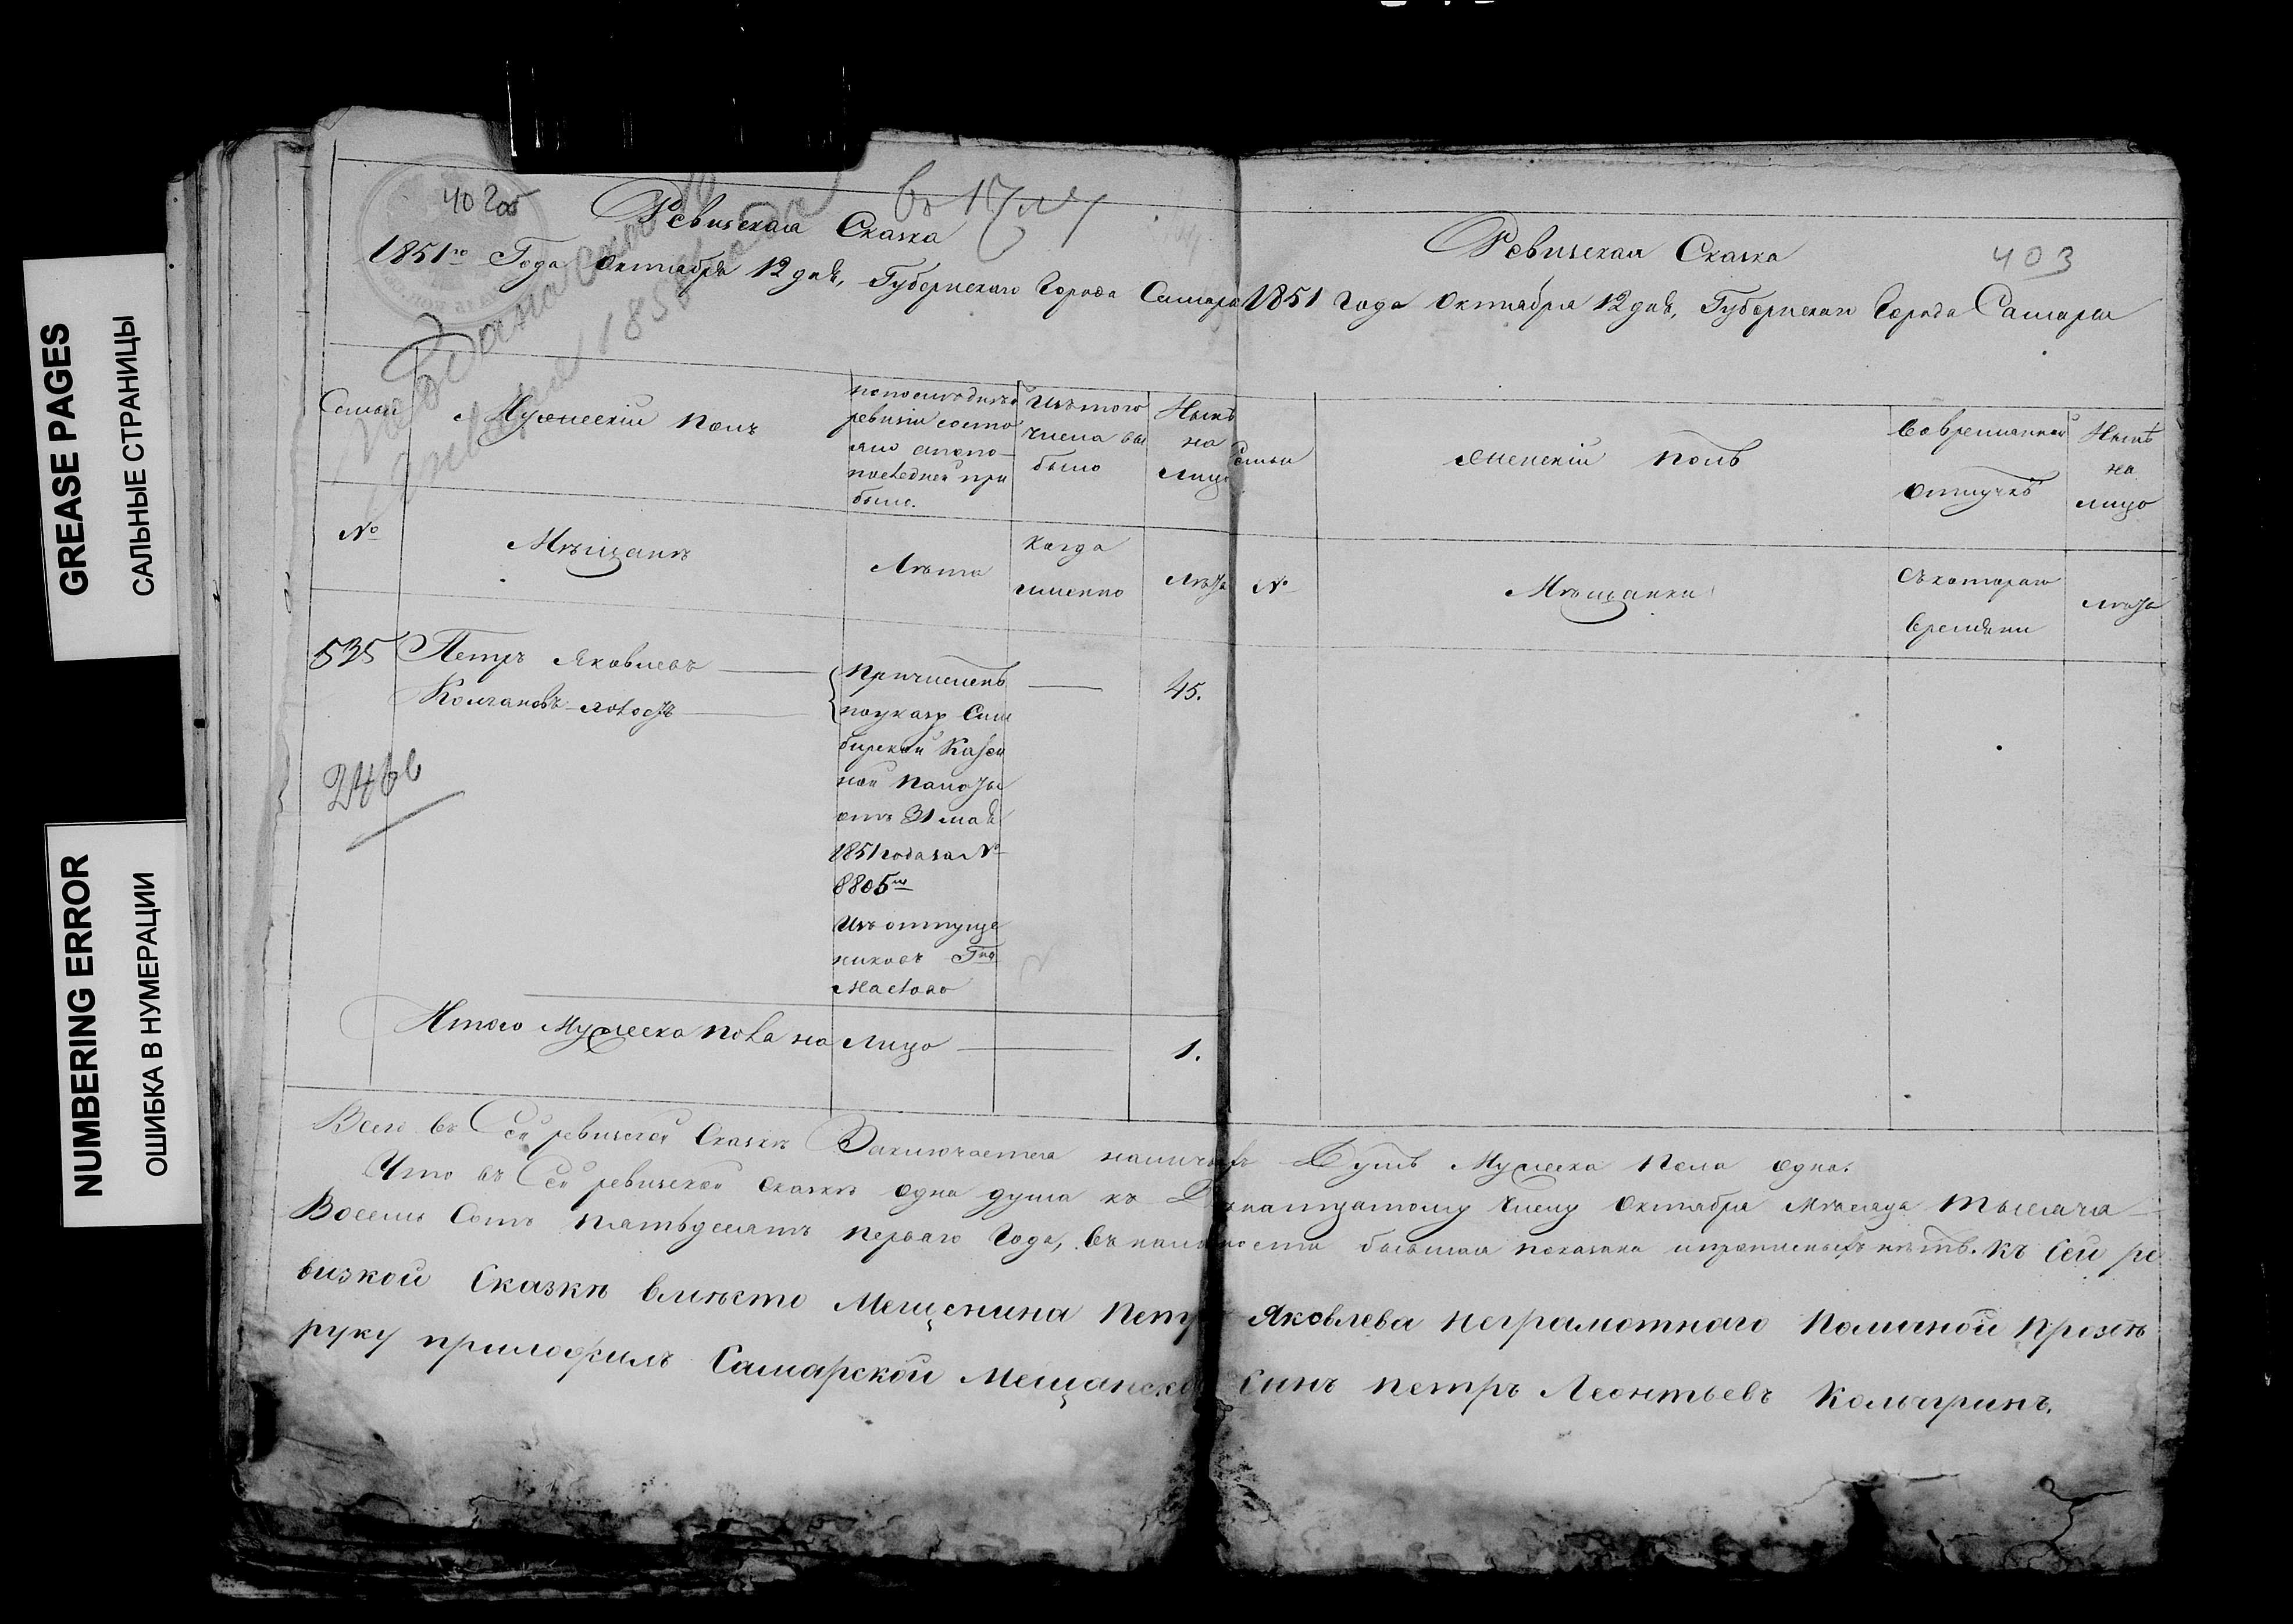 GREASE PAGES
САЛЬНЫЕ СТРАНИЦЫ
NUMBERING ERROR
ОШИБКА В НУМЕРАЦИИ
402об
Ревизская Сказка
1851го Года Октября 12 дня, Губернскаго Города Самары
Подана
Января 1858
Семьи
Мужескій полъ
по последней
ревизіи состо
яло и после
последней при
было.
Изъ того
числа вы
было
Ныне
на
лицо
№
Мѣщанъ
Лѣта
Когда
именно
Лѣта
535
Петръ Яковлевъ
Колчановъ холостъ
Причисленъ
по указу Сим
бирской Казен
ной Палаты
отъ 31 мая
1851 года за №
8805м
Изъ отпуще
никовъ Гна
45.
2466
Итого Мужеска пола на Лицо
1.
Ревизская Сказка
403
1851 года Октября 12 дня, Губернскаго Города Самары
Семьи
Женскій полъ
Во временной
отлучкѣ
Нынѣ
на
лицо
№
Мѣщанки
Съ котораго
времяни
Лѣта
Всего въ Сей ревизской Сказкѣ Заключается наличныхъ Душъ Мужеска Пола одна.
Что въ Сей ревизской сказкѣ одна душа къ Двѣнатцатому Числу Октября Мѣсяца тысяча
Восемь Сотъ Пятьдесятъ перваго Года, въ наличности бывшая показана и прописныхъ нѣтъ. Къ Сей ре
визкой Сказкѣ вмѣсто Мещенина Петра Яковлева неграмотнаго по личной прозбѣ
руку приложилъ Самарской Мещанской Сынъ Петръ Леонтьевъ